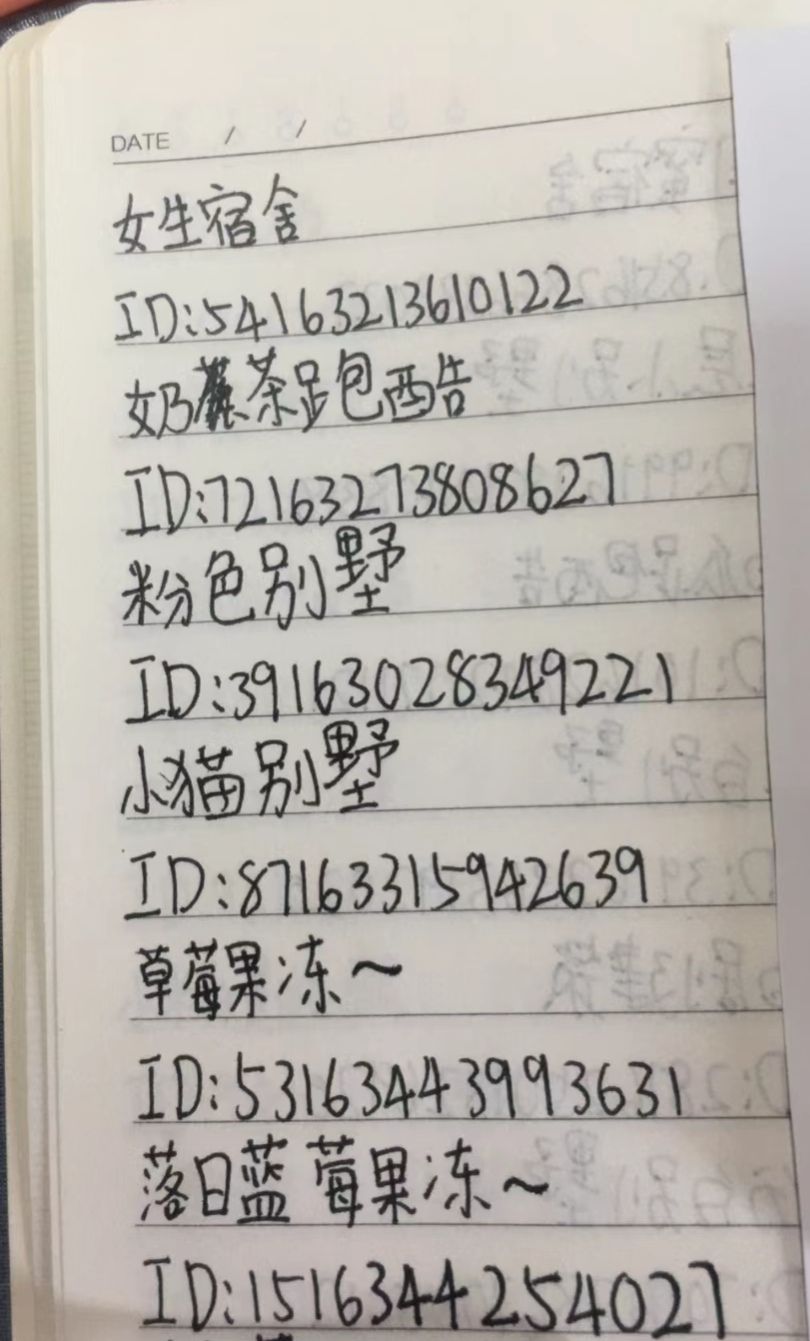 DATE / /
女生宿舍
ID:54163213610122
奶茶跑酷
ID:72163273808627
粉色别墅
ID:391630283349221
小猫别墅
ID:87163315942639
草莓果冻~
ID:531634443993631
落日蓝莓果冻~
ID:1516344254027